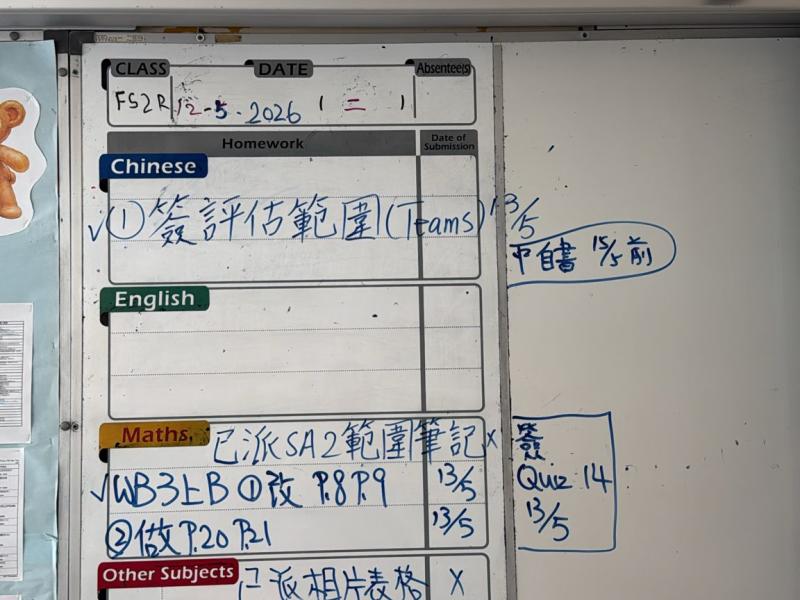 CLASS DATE Absentee(s)
FS2R 12-5-2026 ( 二 )
Homework Date of Submission
Chinese
✓①簽評估範圍(Teams) 13/5
中自書 15/5前
English
Maths 已派SA2範圍筆記 x
✓WB3上B ①改 P.8 P.9 13/5
②做P.20 P.21 13/5
簽
Quiz 14
13/5
Other Subjects 已派相片表格 x